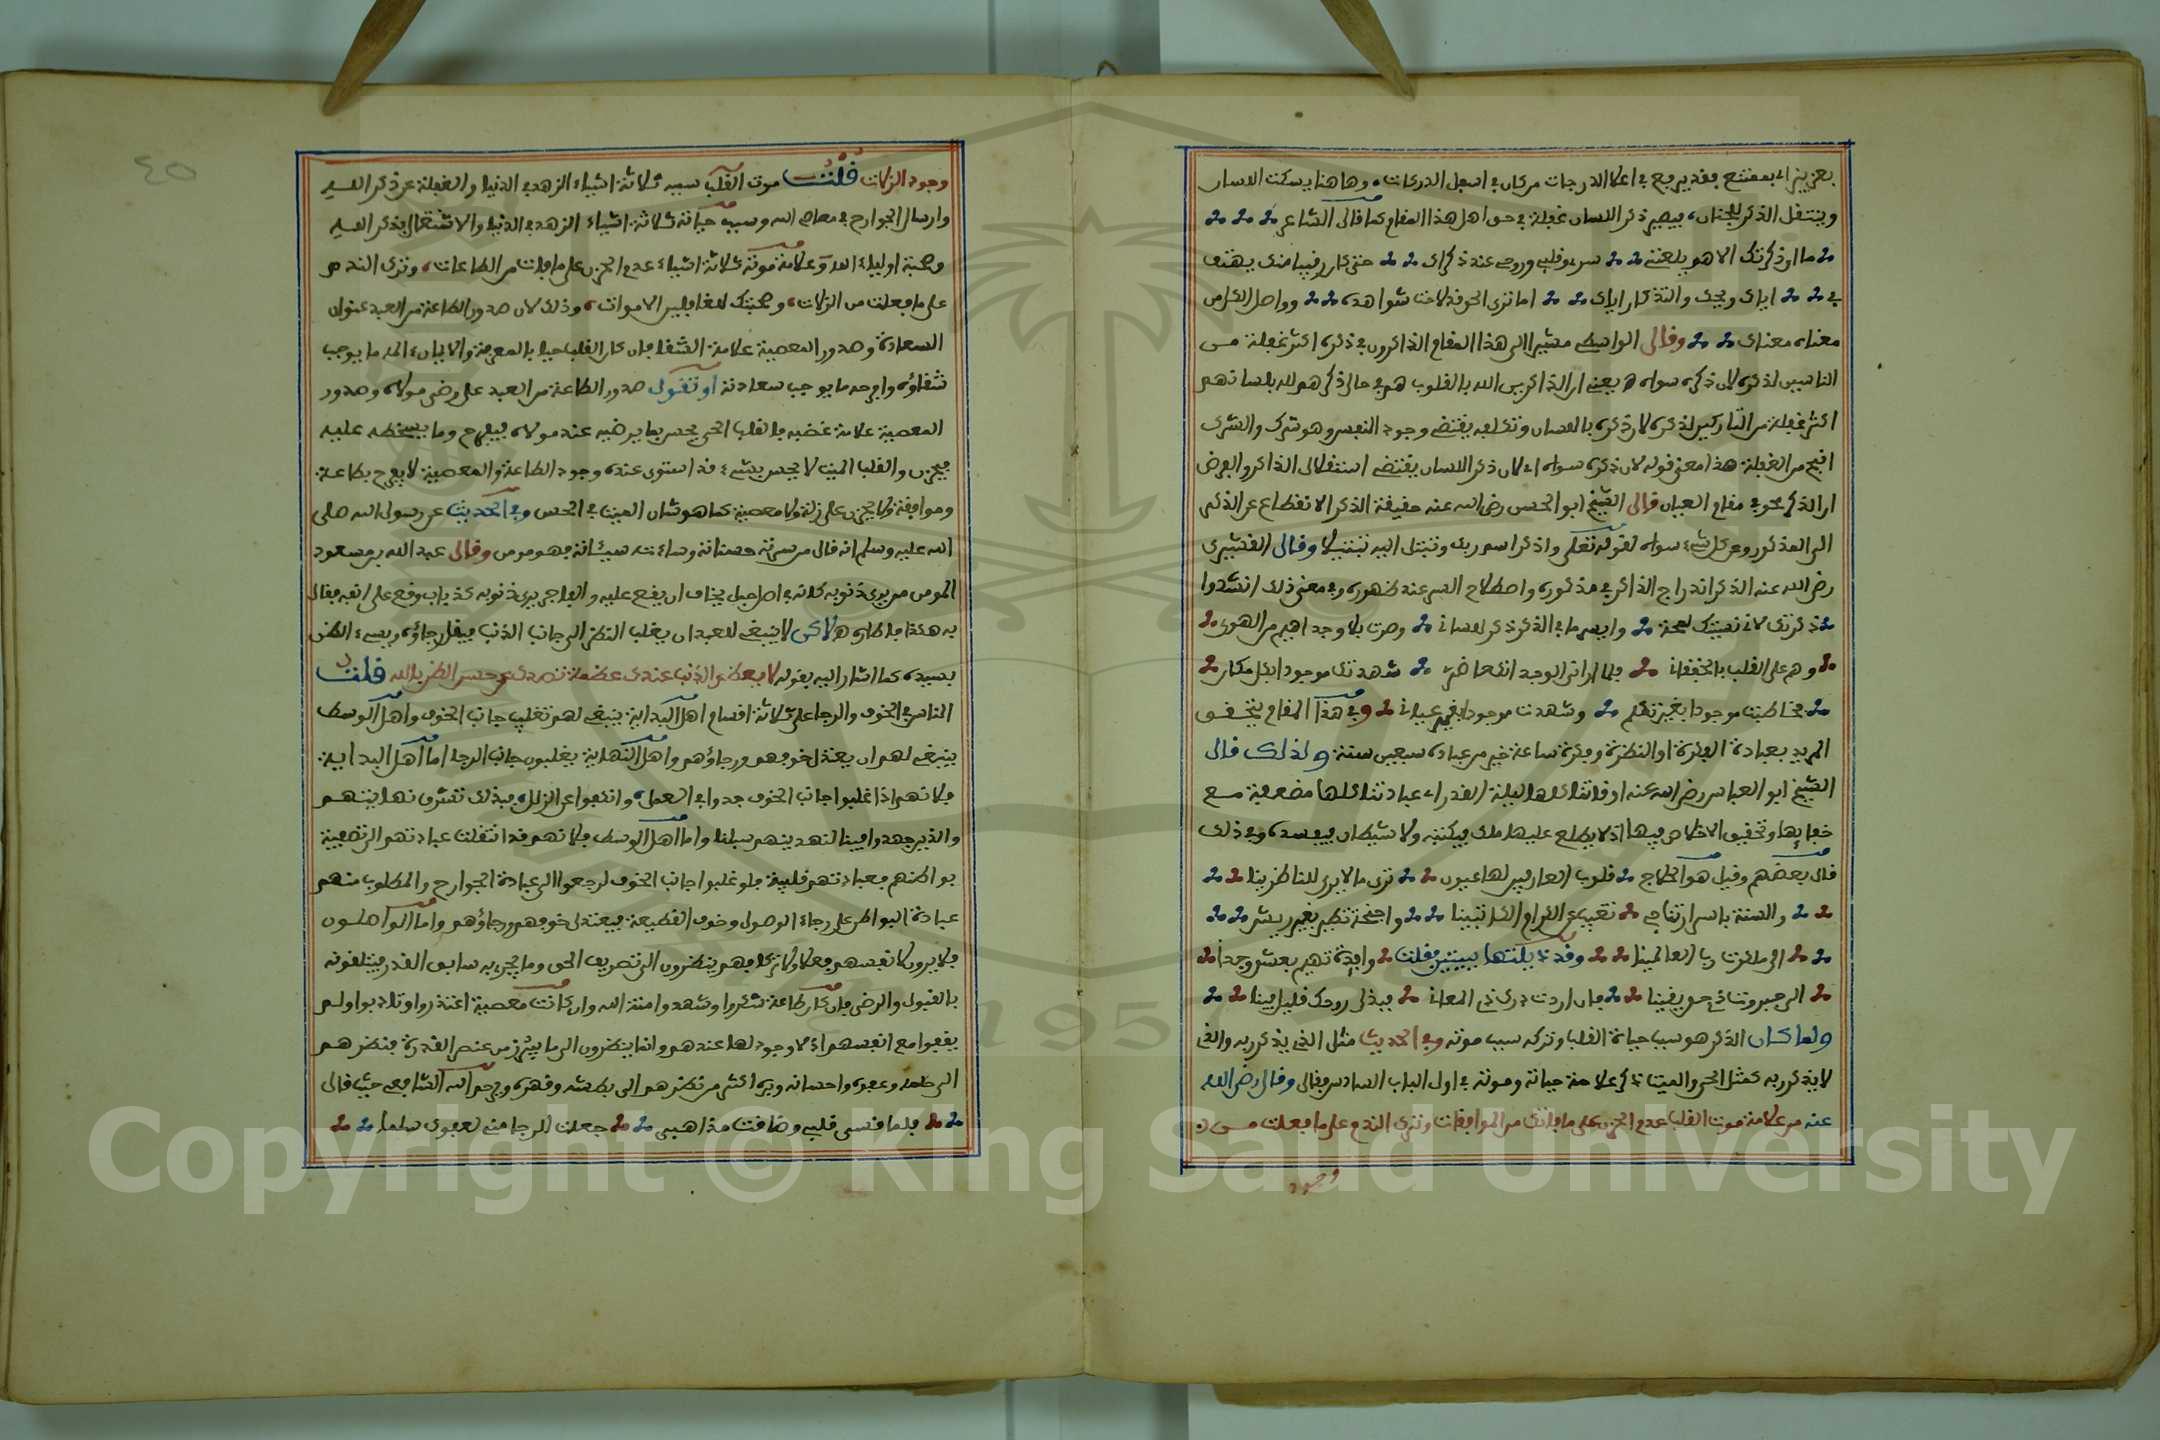 بعزيز اي بممتنع فقد يرفع في اعلا الدرجات من كان في اسفل الدركات وها هنا يسكت اللسان
وينتقل الذكر للجنان فيصير ذكر اللسان غفلة في حق اهل هذا المقام كما قال الشاعر
ما ان ذكرتك الا هم يلعنني سري وقلبي وروحي عند ذكراك حتى كان رقيبا منك يهتف
بي اياك ويحك والتذكار اياك اما ترى الحق قد لاحت شواهده وواصل الكل من
معناه معناك وقال الواسطي مشيرا الى هذا المقام الذاكرون في ذكره اكثر غفلة من
الناسين لذكره لان ذكره سواه يعني ان الذاكرين الله بالقلوب هم في حال ذكرهم لله بلسانهم
اكثر غفلة من التاركين لذكره لان ذكره باللسان وتكلفه يقتضي وجود النفس وهو شرك والشرك
اقبح من الغفلة هذا معنى قوله لان ذكره سواه اي لان ذكر اللسان يقتضي استقلال الذاكر والفرض
ان الذاكر محو في مقام العيان قال الشيخ ابو الحسن رضي الله عنه حقيقة الذكر الانقطاع عن الذكر
الى المذكور وعن كل شيء سواه لقوله تعلى واذكر اسم ربك وتبتل اليه تبتيلا وقال القشيري
رضي الله عنه الذكر اندراج الذاكر في مذكوره واصطلام السر عند ظهوره وفي معنى ذلك انشدوا
ذكرتك لا اني نسيتك لمحة وايسر ما في الذكر ذكر لساني وصرت بلا وجد اهيم من الهوى
وهم على القلب بالخفقان فلما اراني الوجد انك حاضري شهدتك موجودا بكل مكان
فخاطبت موجودا بغير تكلم وشهدت موجودا بغير عيان وفي هذا المقام يتحقق
المريد بعبادة الفكرة او النظرة وفكرة ساعة خير من عبادة سبعين سنة ولذلك قال
الشيخ ابو العباس رضي الله عنه اوقاتنا كلها ليلة القدر اي عبادتنا كلها مضعفة مع
خفايها وتحقيق الاخلاص فيها اذ لا يطلع عليها ملك فيكتبه ولا شيطان فيفسده وفي ذلك
قال بعضهم وقيل هو الحلاج قلوب العارفين لها عيون ترى ما لا يرى للناظرينا
والسنة باسرار تناجي تغيب عن الكرام الكاتبينا واجنحة تطير بغير ريش
الى ملكوت رب العالمينا وقد ذيلتها ببيتين فقلت وافيدة تهيم بعشق وجدا
الى جبروت ذي حق يقينا فان اردت ذي المعاني فبذل روحك قليل فينا
ولما كان الذكر هو سبب حياة القلب وتركه سبب موته وفي الحديث مثل الذي يذكر ربه والذي
لا يذكر ربه كمثل الحي والميت ذكر علامة حياته وموته في اول الباب السادس فقال وقال رضي الله
عنه من علامة موت القلب عدم الحزن على ما فاتك من الموافقات وترك الندم على ما فعلت من
وجود
٤٥
وجود الزلات قلت موت القلب سببه ثلاثة اشياء الزهد في الدنيا والغفلة عن ذكر الله
وارسال الجوارح في معاصي الله وسبب حياته ثلاثة اشياء الزهد في الدنيا والاشتغال بذكر الله
وصحبة اولياء الله وعلامة موته ثلاثة اشياء عدم الحزن على ما فات من الطاعات وترك الندم
على ما فعلت من الزلات وصحبتك للغافلين الاموات وذلك لان صدور الطاعة من العبد عنوان
السعادة وصدور المعصية علامة الشقا فان كان القلب حيا بالمعرفة والايمان المه ما يوجب
شقاؤه وافرحه ما يوجب سعادته او تقول صدور الطاعة من العبد على رضى مولاه وصدور
المعصية علامة غضبه فالقلب الحي يحس بما يرضيه عند مولاه فيفرح وما يسخطه عليه
فيحزن والقلب الميت لا يحس بشيء قد استوى عنده وجود الطاعة والمعصية لا يفرح بطاعة
وموافقة ولا يحزن على زلة ولا معصية كما هو شان الميت في الحس وفي الحديث عن رسول الله صلى
الله عليه وسلم انه قال من سرته حسناته وساءته سيئاته فهو مومن وقال عبد الله بن مسعود
المومن من يرى ذنوبه كانه في اصل جبل يخاف ان يقع عليه والفاجر يرى ذنوبه كذباب وقع على انفه فقال
به هكذا فاطاره لاكن لا ينبغي للعبد ان يغلب النظر الى جانب الذنب فيقل رجاؤه ويسيء الظن
بسيده كما اشار اليه بقوله لا يعظم الذنب عندك عظمة تصدك عن حسن الظن بالله قلت
الناس في الخوف والرجا على ثلاثة اقسام اهل البداية ينبغي لهم تغليب جانب الخوف واهل الوسط
ينبغي لهم ان يعتدل خوفهم ورجاؤهم واهل النهاية يغلبون جانب الرجا اما اهل البداية
فلانهم اذا غلبوا جانب الخوف جدوا في العمل وانكفوا عن الزلل فبذلك تشرق نهايتهم
والذين جهدوا فينا لنهدينهم سبلنا واما اهل الوسط فلانهم قد انتقلت عبادتهم الى تصفية
بواطنهم فعبادتهم قلبية فلو غلبوا جانب الخوف لرجعوا الى عبادة الجوارح والمطلوب منهم
عبادة البواطن على رجاء الوصول وخوف القطيعة فيعتدل خوفهم ورجاؤهم واما الواصلون
فلا يرون لانفسهم فعلا ولا تركا فهم ينظرون الى تصريف الحق وما يجري به سابق القدر فيتلقونه
بالقبول والرضى فان كان طاعة شكروا وشهدوا منة الله وان كانت معصية اعتذروا وتادبوا ولم
يقفوا مع انفسهم اذ لا وجود لها عندهم وانما ينظرون الى ما يبرز من عنصر القدرة فنظرهم
الى حلمه وعفوه واحسانه وبره اكثر من نظرهم الى بطشه وقهره ويرحم الله الشافعي حيث قال
فلما قسى قلبي وضاقت مذاهبي جعلت الرجا مني لعفوك سلما
Copyright © King Saud University
1957